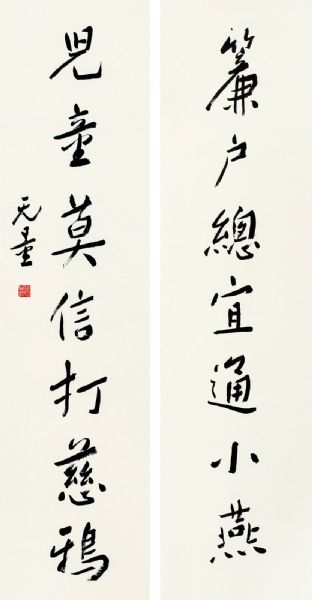 簾户總宜通小燕
兒童莫信打慈鴉
无量